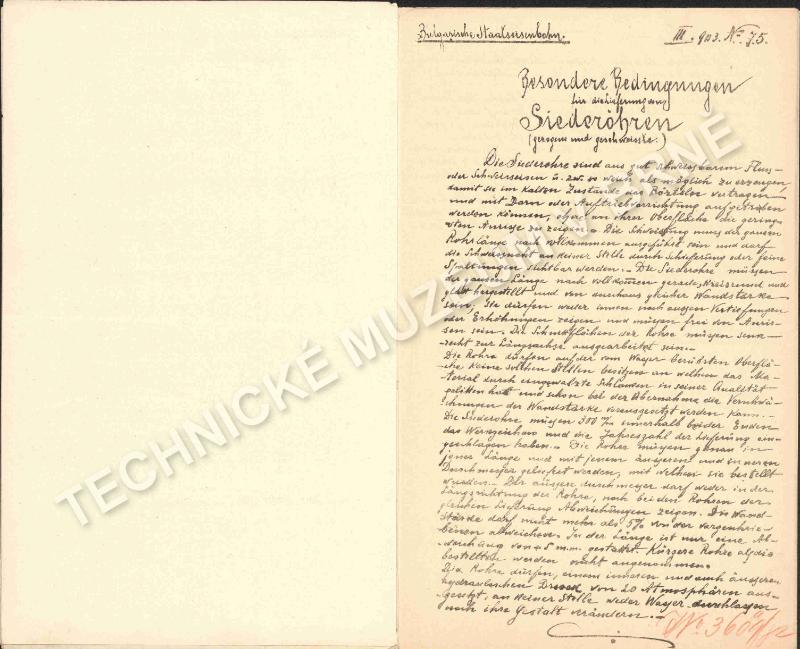 Bulgarische Staatseisenbahn.
III. 903. No. 75.
Besondere Bedingungen
für die Lieferung von
Siederöhren
(gezogene und geschweisste.)
Die Siederohre sind aus gut schweissbarem Fluss-
oder Schweisseisen u. zw. so weich als möglich zu erzeugen
damit sie im kalten Zustande das Börteln vertragen
und mit Dorn oder Auftreibvorrichtung aufgetrieben
werden können, ohne an ihrer Oberfläche die gering-
sten Anrisse zu zeigen. Die Schweissung muss der ganzen
Rohrlänge nach vollkommen ausgeführt sein und darf
die Schweissnaht an keiner Stelle durch Schieferung oder feine
Spaltungen sichtbar werden. Die Siederohre müssen
der ganzen Länge nach vollkommen gerade, kreisrund und
glatt hergestellt und von durchaus gleicher Wandstärke
sein, Sie dürfen weder innen noch aussen Vertiefungen
oder Erhöhungen zeigen und müssen frei von Anris-
sen sein. Die Schnittflächen der Rohre müssen senk-
recht zur Längsachse ausgearbeitet sein.
Die Rohre dürfen auf der vom Wasser berührten Oberflä-
che keine solchen Stellen besitzen an welchen das Ma-
terial durch eingewalzte Schlacken in seiner Qualität
gelitten hat und schon bei der Übernahme die
der Wandstärke vorausgesetzt werden kann.
Die Siederohre müssen 300 m/m innerhalb beider Enden
das Werkzeichen und die Jahreszahl der Lieferung ein-
geschlagen haben. Die Rohre müssen genau in
jener Länge und mit jenem äusseren und inneren
Durchmesser geliefert werden, mit welchen sie bestellt
wurden. Der äussere durchmesser darf weder in der
Längsrichtung der Rohre, noch bei den Rohren der-
gleichen Lieferung Abweichungen zeigen. Die Wand-
stärke darf nicht mehr als 5% von der vorgeschrie-
benen abweichen. In der Länge ist nur eine Ab-
weichung von +5 m.m. gestattet. Kürzere Rohre als die
bestellten werden nicht angenommen.
Die Rohre dürfen, einem inneren und auch äusseren
hydraulischen Druck von 20 Atmosphären aus-
gesetzt, an keiner Stelle weder Wasser durchlassen
noch ihre Gestalt verändern.
No. 360
TECHNICKÉ MUZEUM V BRNĚ